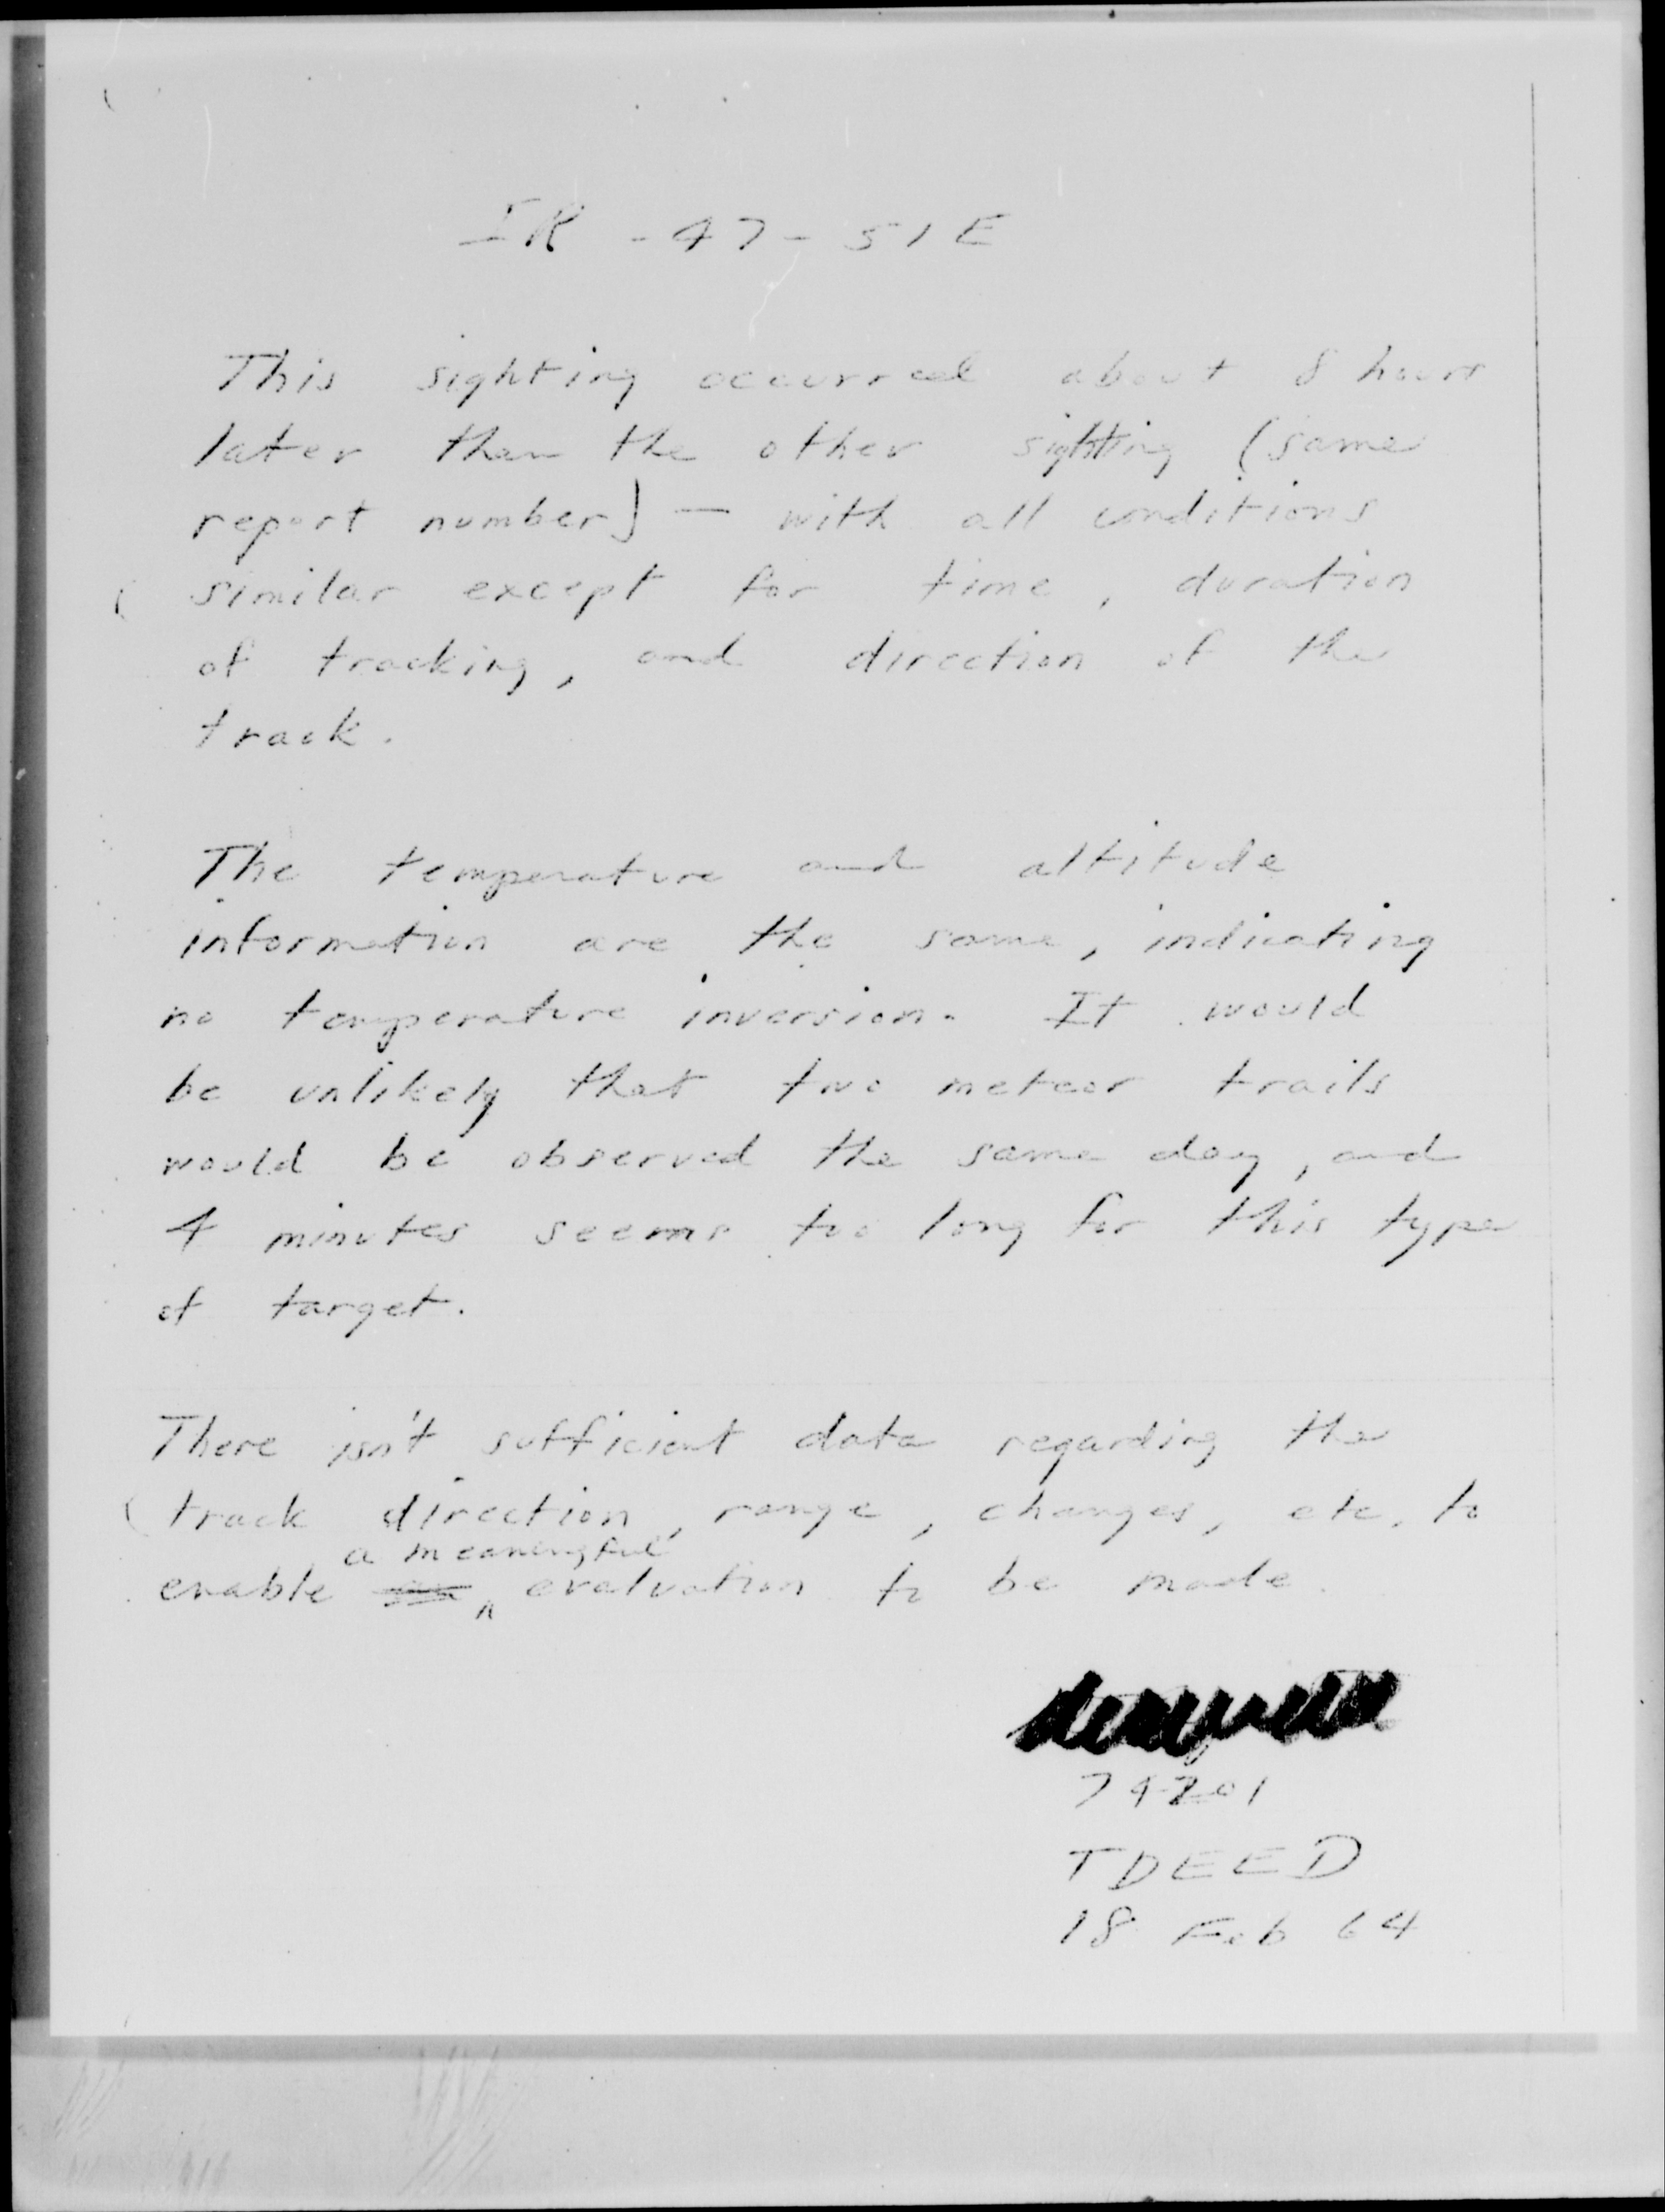 IR - 47 - 51E
This sighting occurred about 8 hours
later than the other sighting (same
report number) — with all conditions
similar except for time, duration
of tracking, and direction of the
track.
The temperature and altitude
information are the same, indicating
no temperature inversion. It would
be unlikely that two meteor trails
would be observed the same day, and
4 minutes seems too long for this type
of target.
There isn't sufficient data regarding the
track direction, range, changes, etc. to
a meaningful
enable evaluation to be made.
74201
TDEED
18 Feb 64